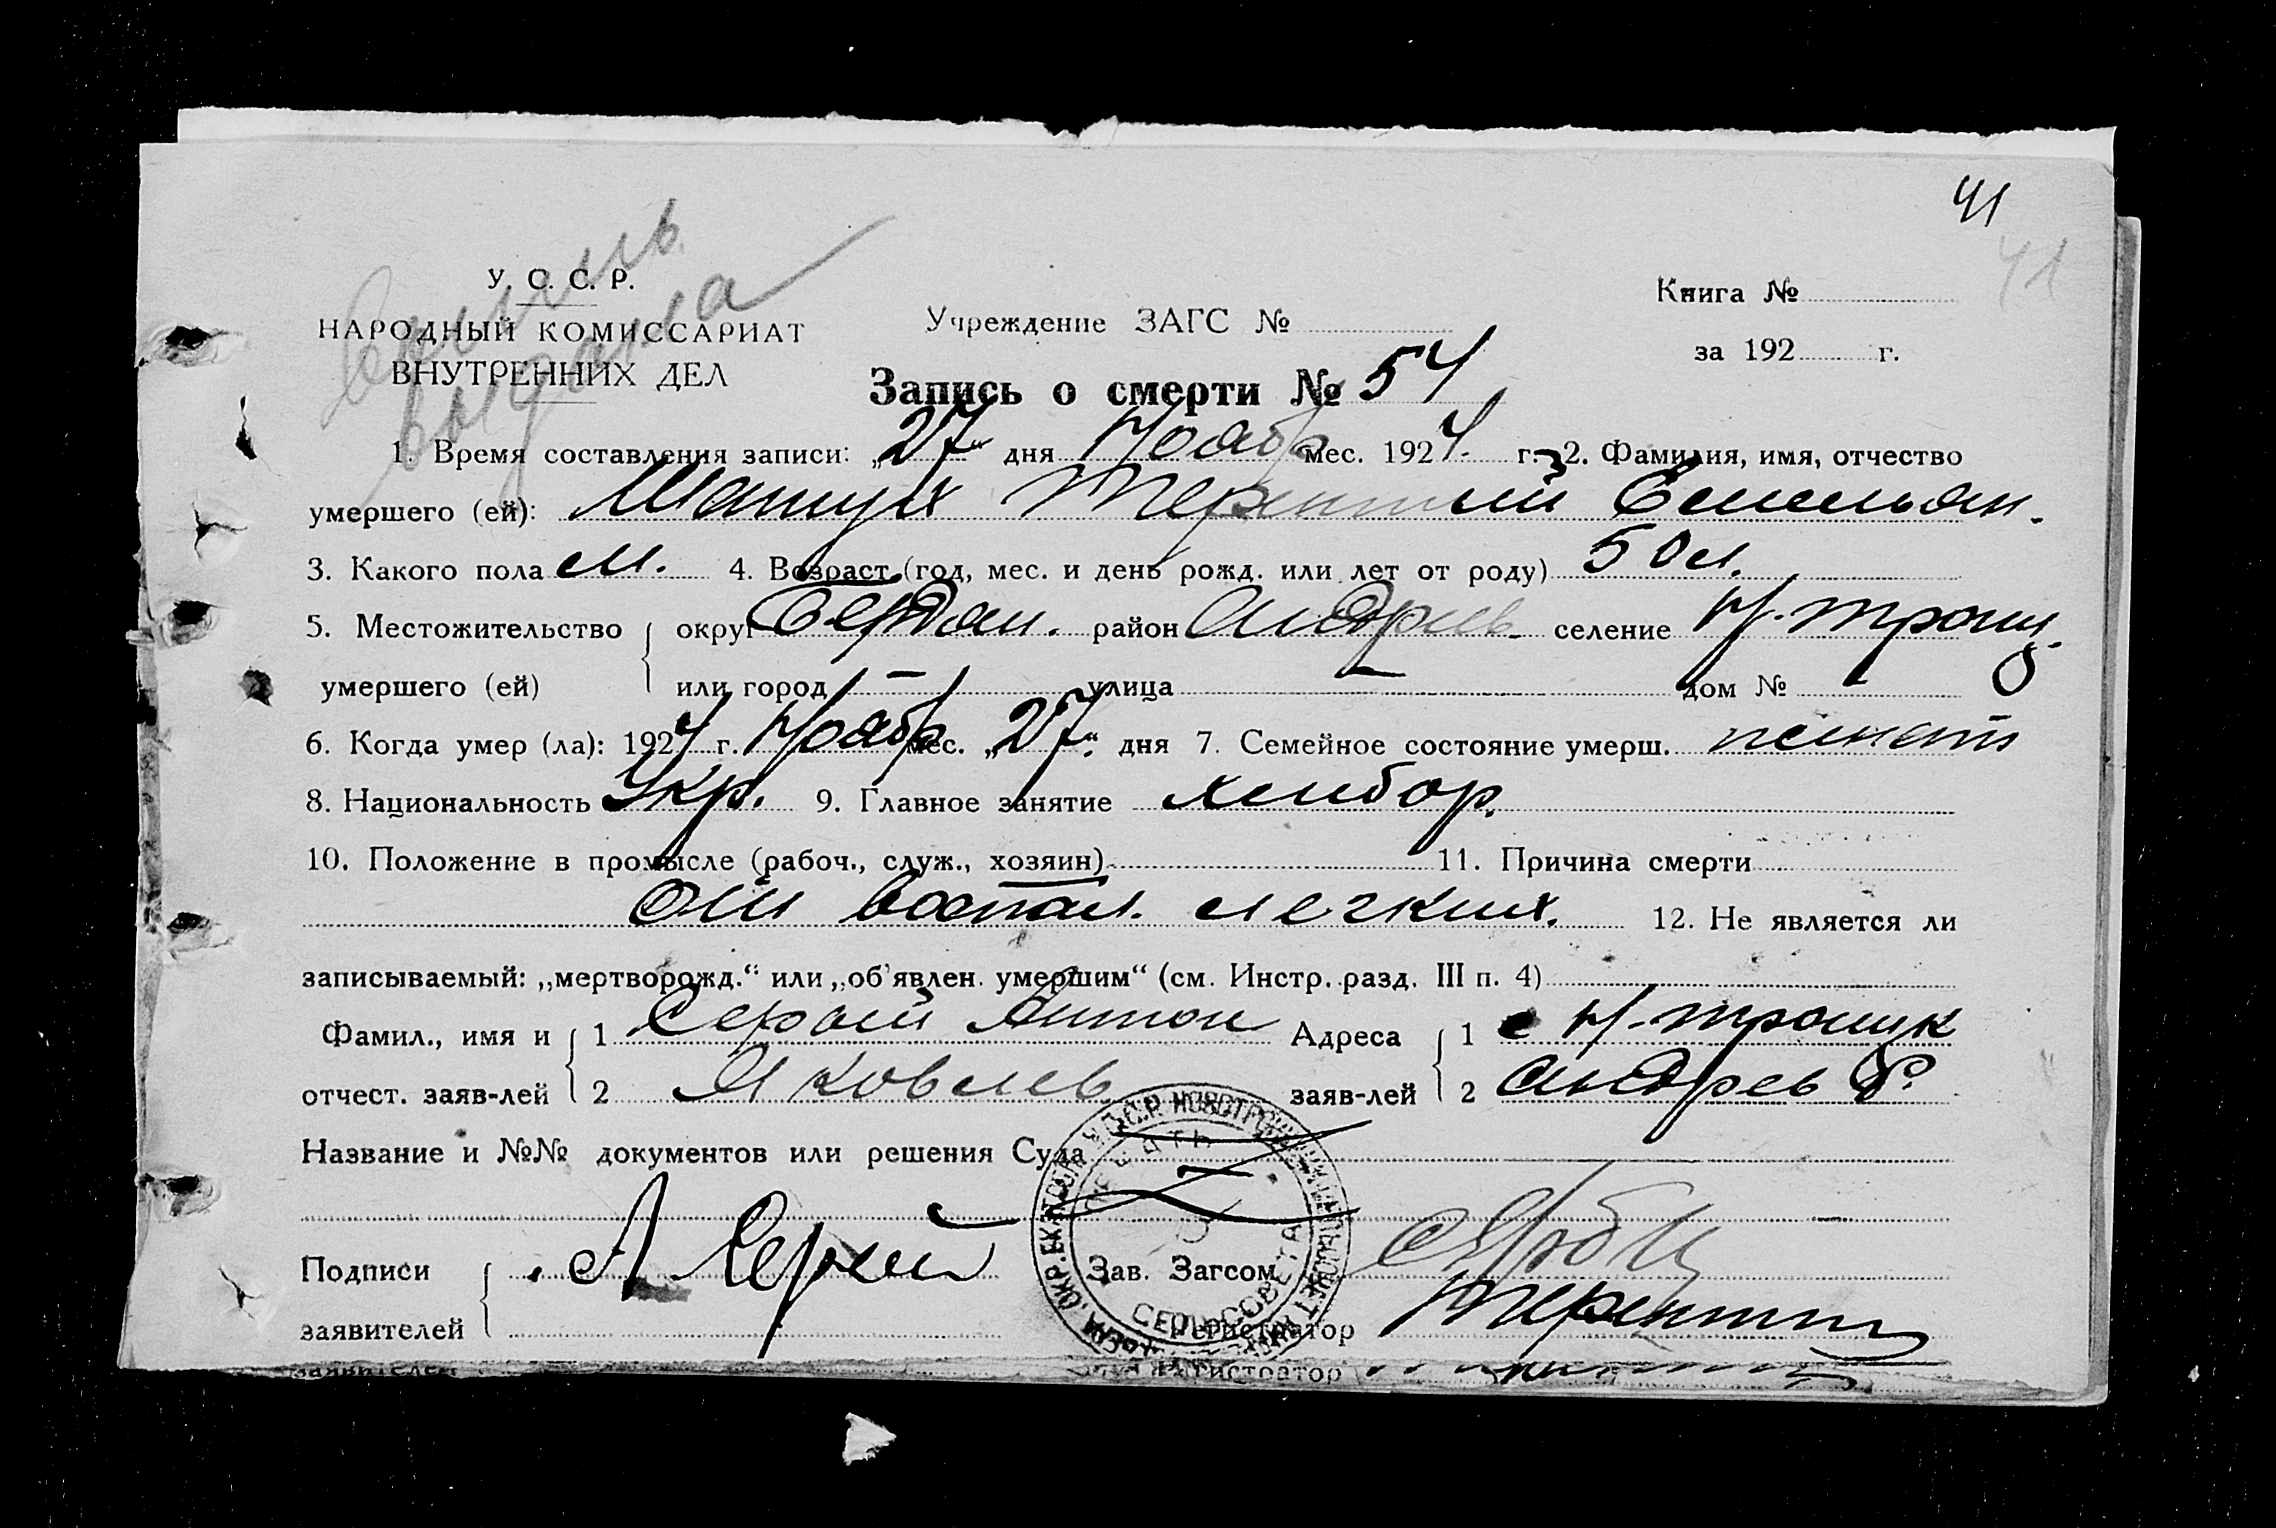 41
41
У. С. С. Р.
НАРОДНЫЙ КОМИССАРИАТ
ВНУТРЕННИХ ДЕЛ
выдана
Учреждение ЗАГС №
Книга №
за 192 г.
Запись о смерти № 54
1. Время составления записи: „27“ дня Ноябр мес. 1924. г. 2. Фамилия, имя, отчество
умершего (ей): Терентий Емельян.
3. Какого пола м. 4. Возраст (год, мес. и день рожд. или лет от роду) 50 л.
5. Местожительство округ Бердян. район Андрев. селение Н. Троиц.
умершего (ей) или город — улица — дом №
6. Когда умер (ла): 1924 г. Ноябр мес. „27“ дня 7. Семейное состояние умерш. женат
8. Национальность Укр. 9. Главное занятие хлибор.
10. Положение в промысле (рабоч., служ., хозяин) 11. Причина смерти
От воспал. легких. 12. Не является ли
записываемый: „мертворожд.“ или „об'явлен. умершим“ (см. Инстр. разд. III п. 4)
Фамил., имя и 1 Серый Антон Адреса 1 с Н. Троицк
отчест. заяв-лей 2 Яковлев. заяв-лей 2 Андрев Р.
Название и №№ документов или решения Суда
Подписи А Серый Зав. Загсом
заявителей Регистратор
СЕЛЬСОВЕТА